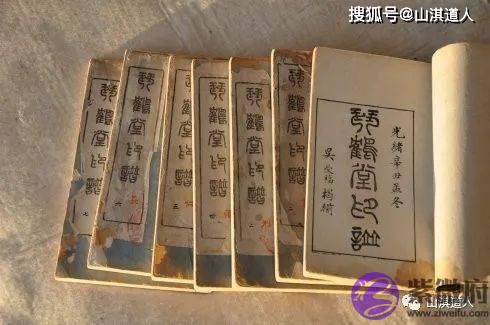 搜狐号@山淇道人
琴鶴堂印譜
七
琴鶴堂印譜
六
琴鶴堂印譜
三
琴鶴堂印譜
琴鶴堂印譜
二
琴鶴堂印譜
光緒辛丑孟冬
琴鶴堂印譜
吳受福
紫微府
www.ziweifu.com
山淇道人